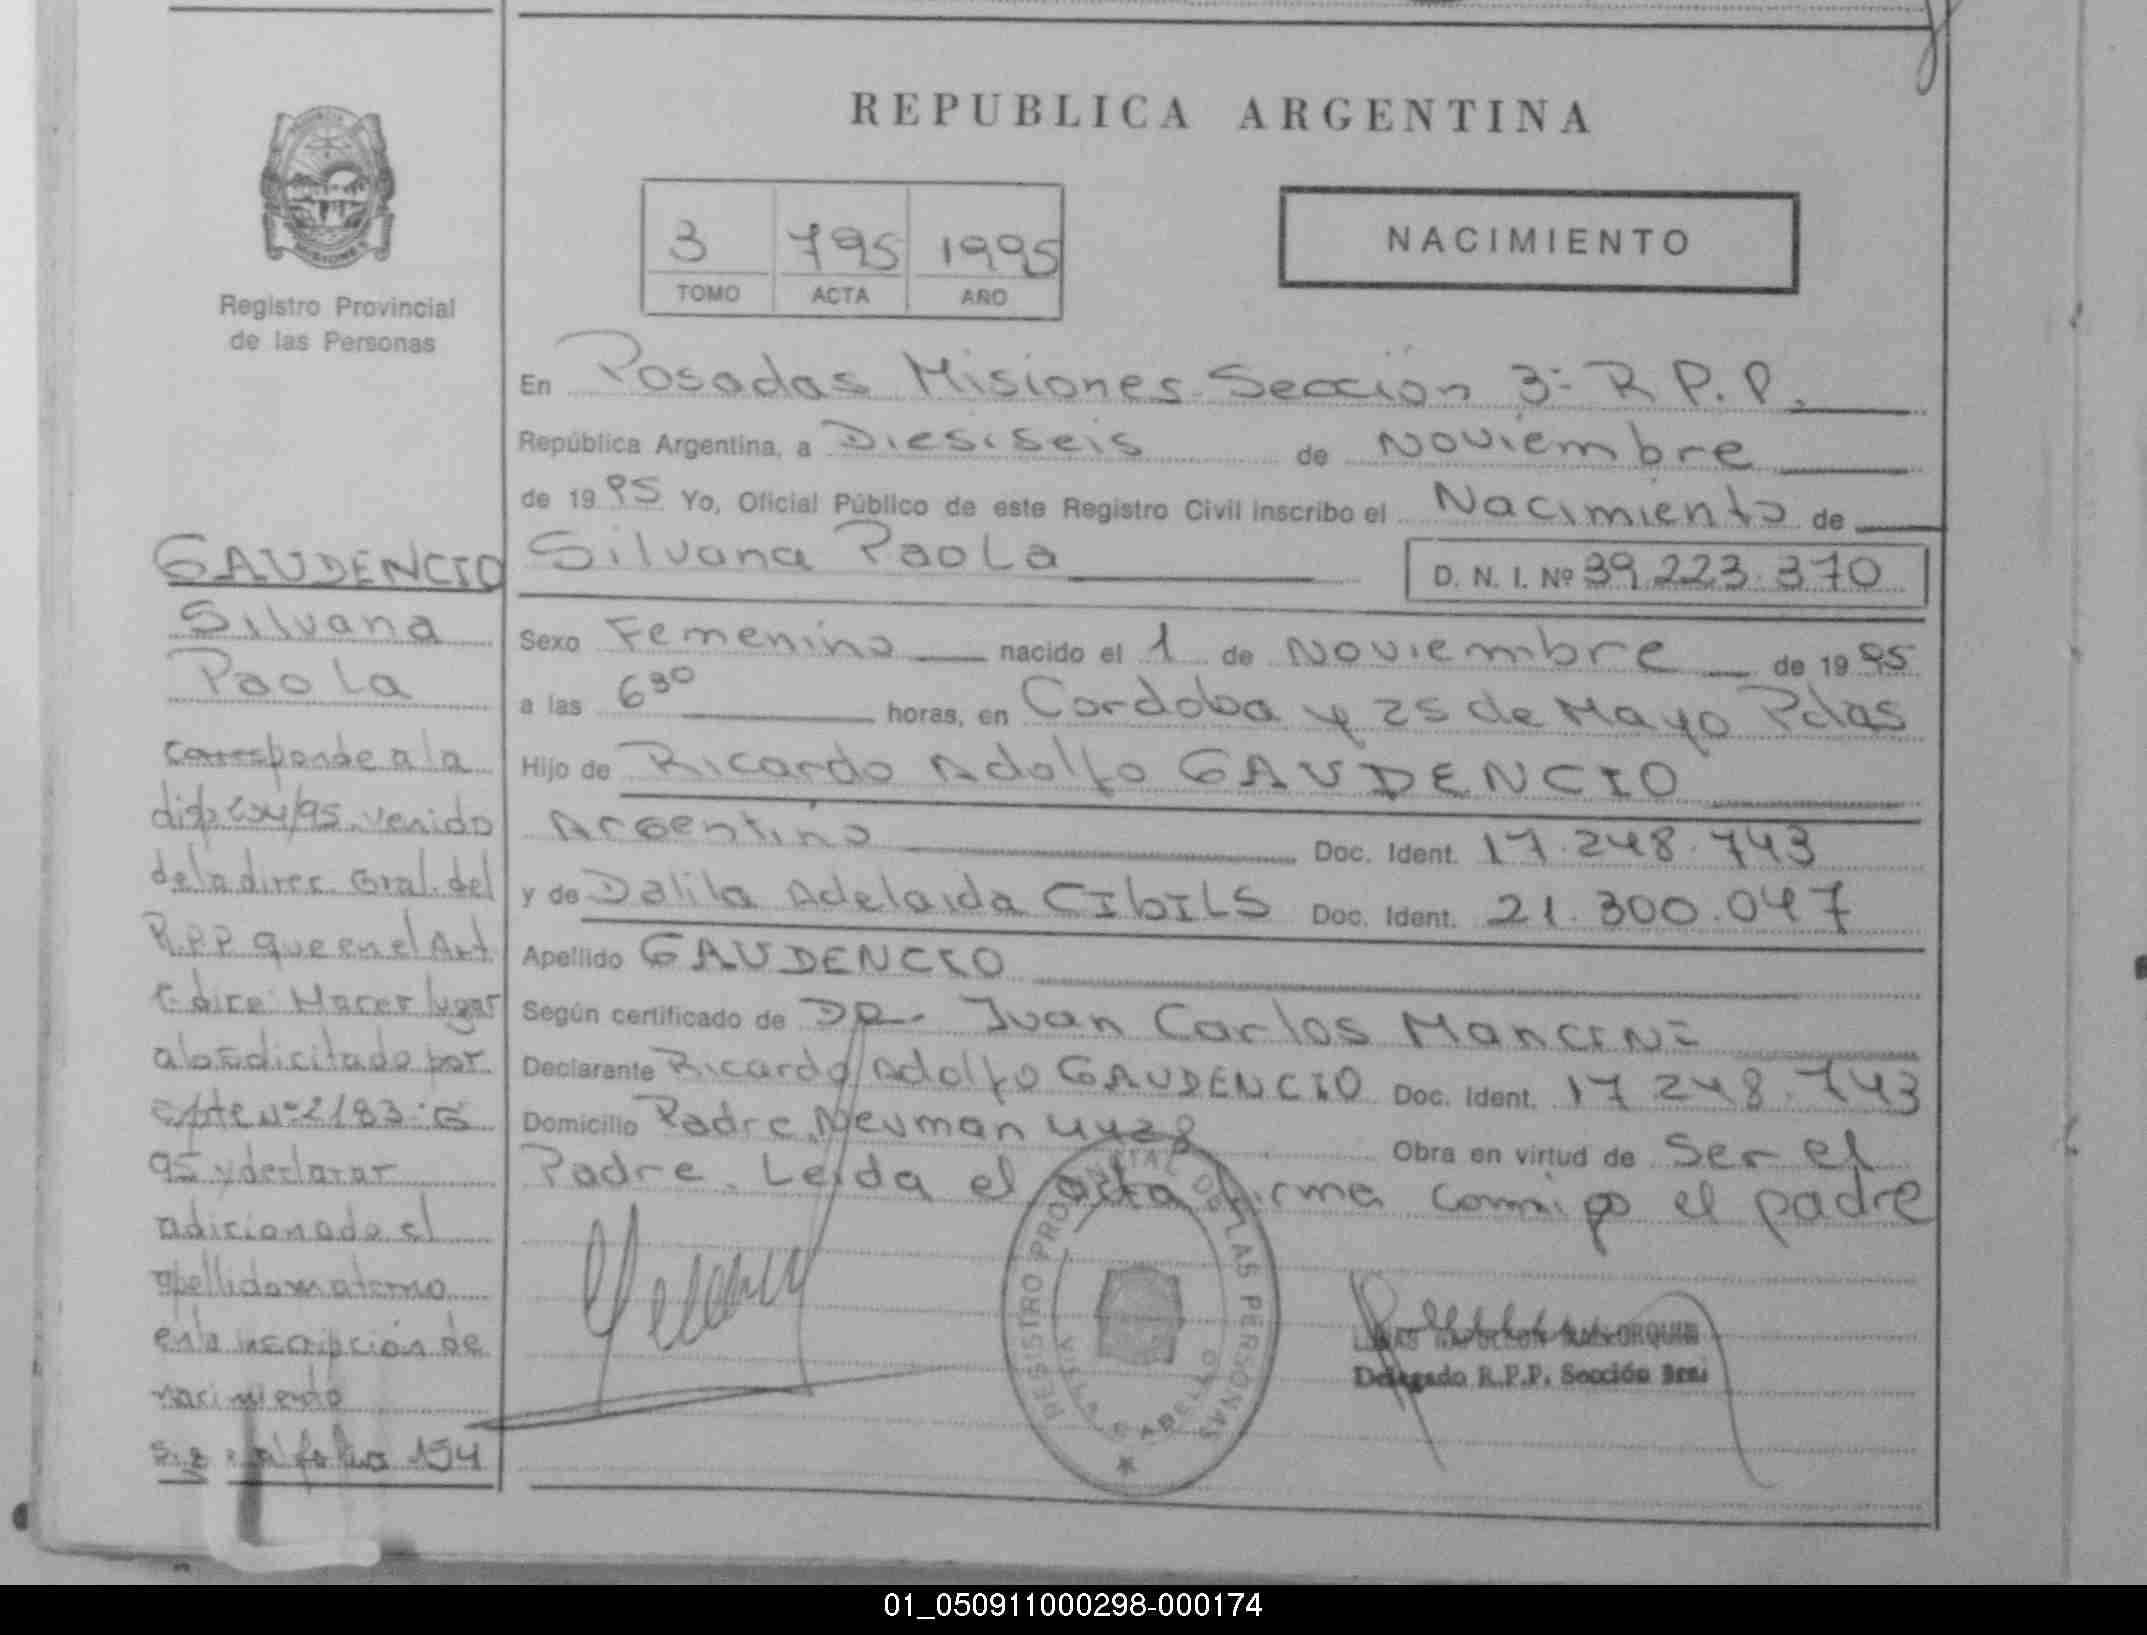 REPUBLICA ARGENTINA
3 795 1995
TOMO ACTA AÑO
NACIMIENTO
Registro Provincial
de las Personas
En Posadas Misiones Sección 3ª R.P.P.
República Argentina, a Diesiseis de Noviembre
de 1995 Yo, Oficial Público de este Registro Civil inscribo el Nacimiento de
Silvana Paola D. N. I. Nº 39.223.370
Sexo Femenino nacido el 1 de Noviembre de 1995
a las 6³⁰ horas, en Cordoba y 25 de Mayo Pdas
Hijo de Ricardo Adolfo GAUDENCIO
Argentino Doc. Ident. 17.248.743
y de Dalila Adelaida CIbILS Doc. Ident. 21.300.047
Apellido GAUDENCIO
Según certificado de DR. Juan Carlos MANCINI
Declarante Ricardo Adolfo GAUDENCIO Doc. Ident. 17.248.743
Domicilio Padre Neuman 4428 Obra en virtud de Ser el
Padre. Leida el acta firma conmigo el padre
Delegado R.P.P. Sección 3ra
REGISTRO PROVINCIAL DE LAS PERSONAS
VILLA CABELLO
GAUDENCIO
Silvana
Paola
Corresponde a la
disp 254/95 venido
de la direc. Gral. del
R.P.P. que en el Art
dice: Hacer lugar
a lo solicitado por
expte Nº 2183-G
95 y declarar
adicionado el
apellido materno
en la inscripción de
nacimiento
al folio 154
01_050911000298-000174